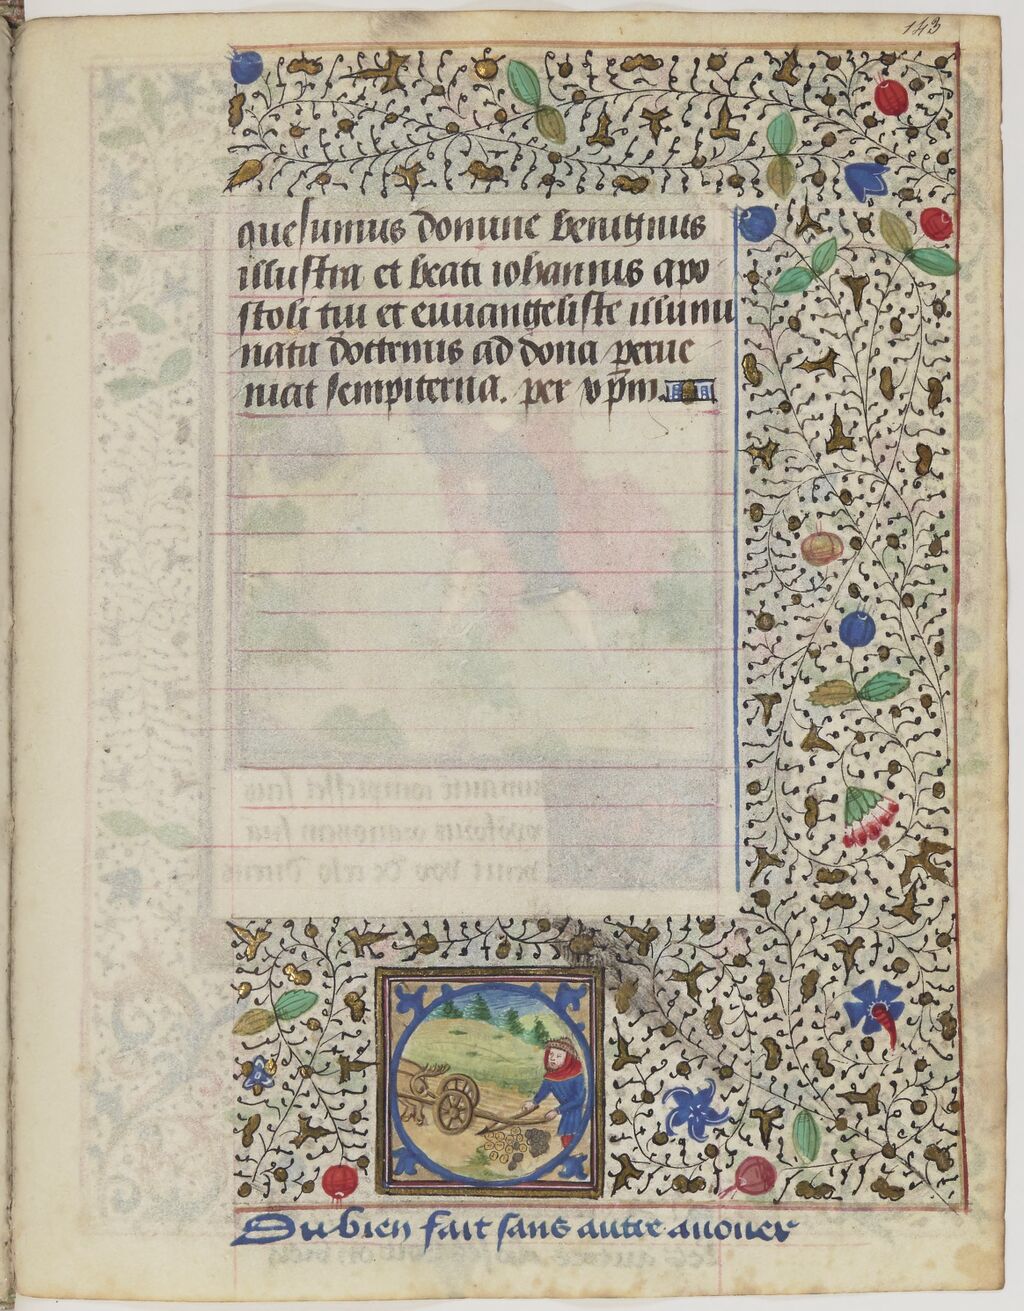 143
quesumus domine benignus
illustra et beati iohannis apo
stoli tui et euuangeliste illumi
nata doctrinis ad dona perue
niat sempiterna. per xpm.
Du bien fait sans autre auouer